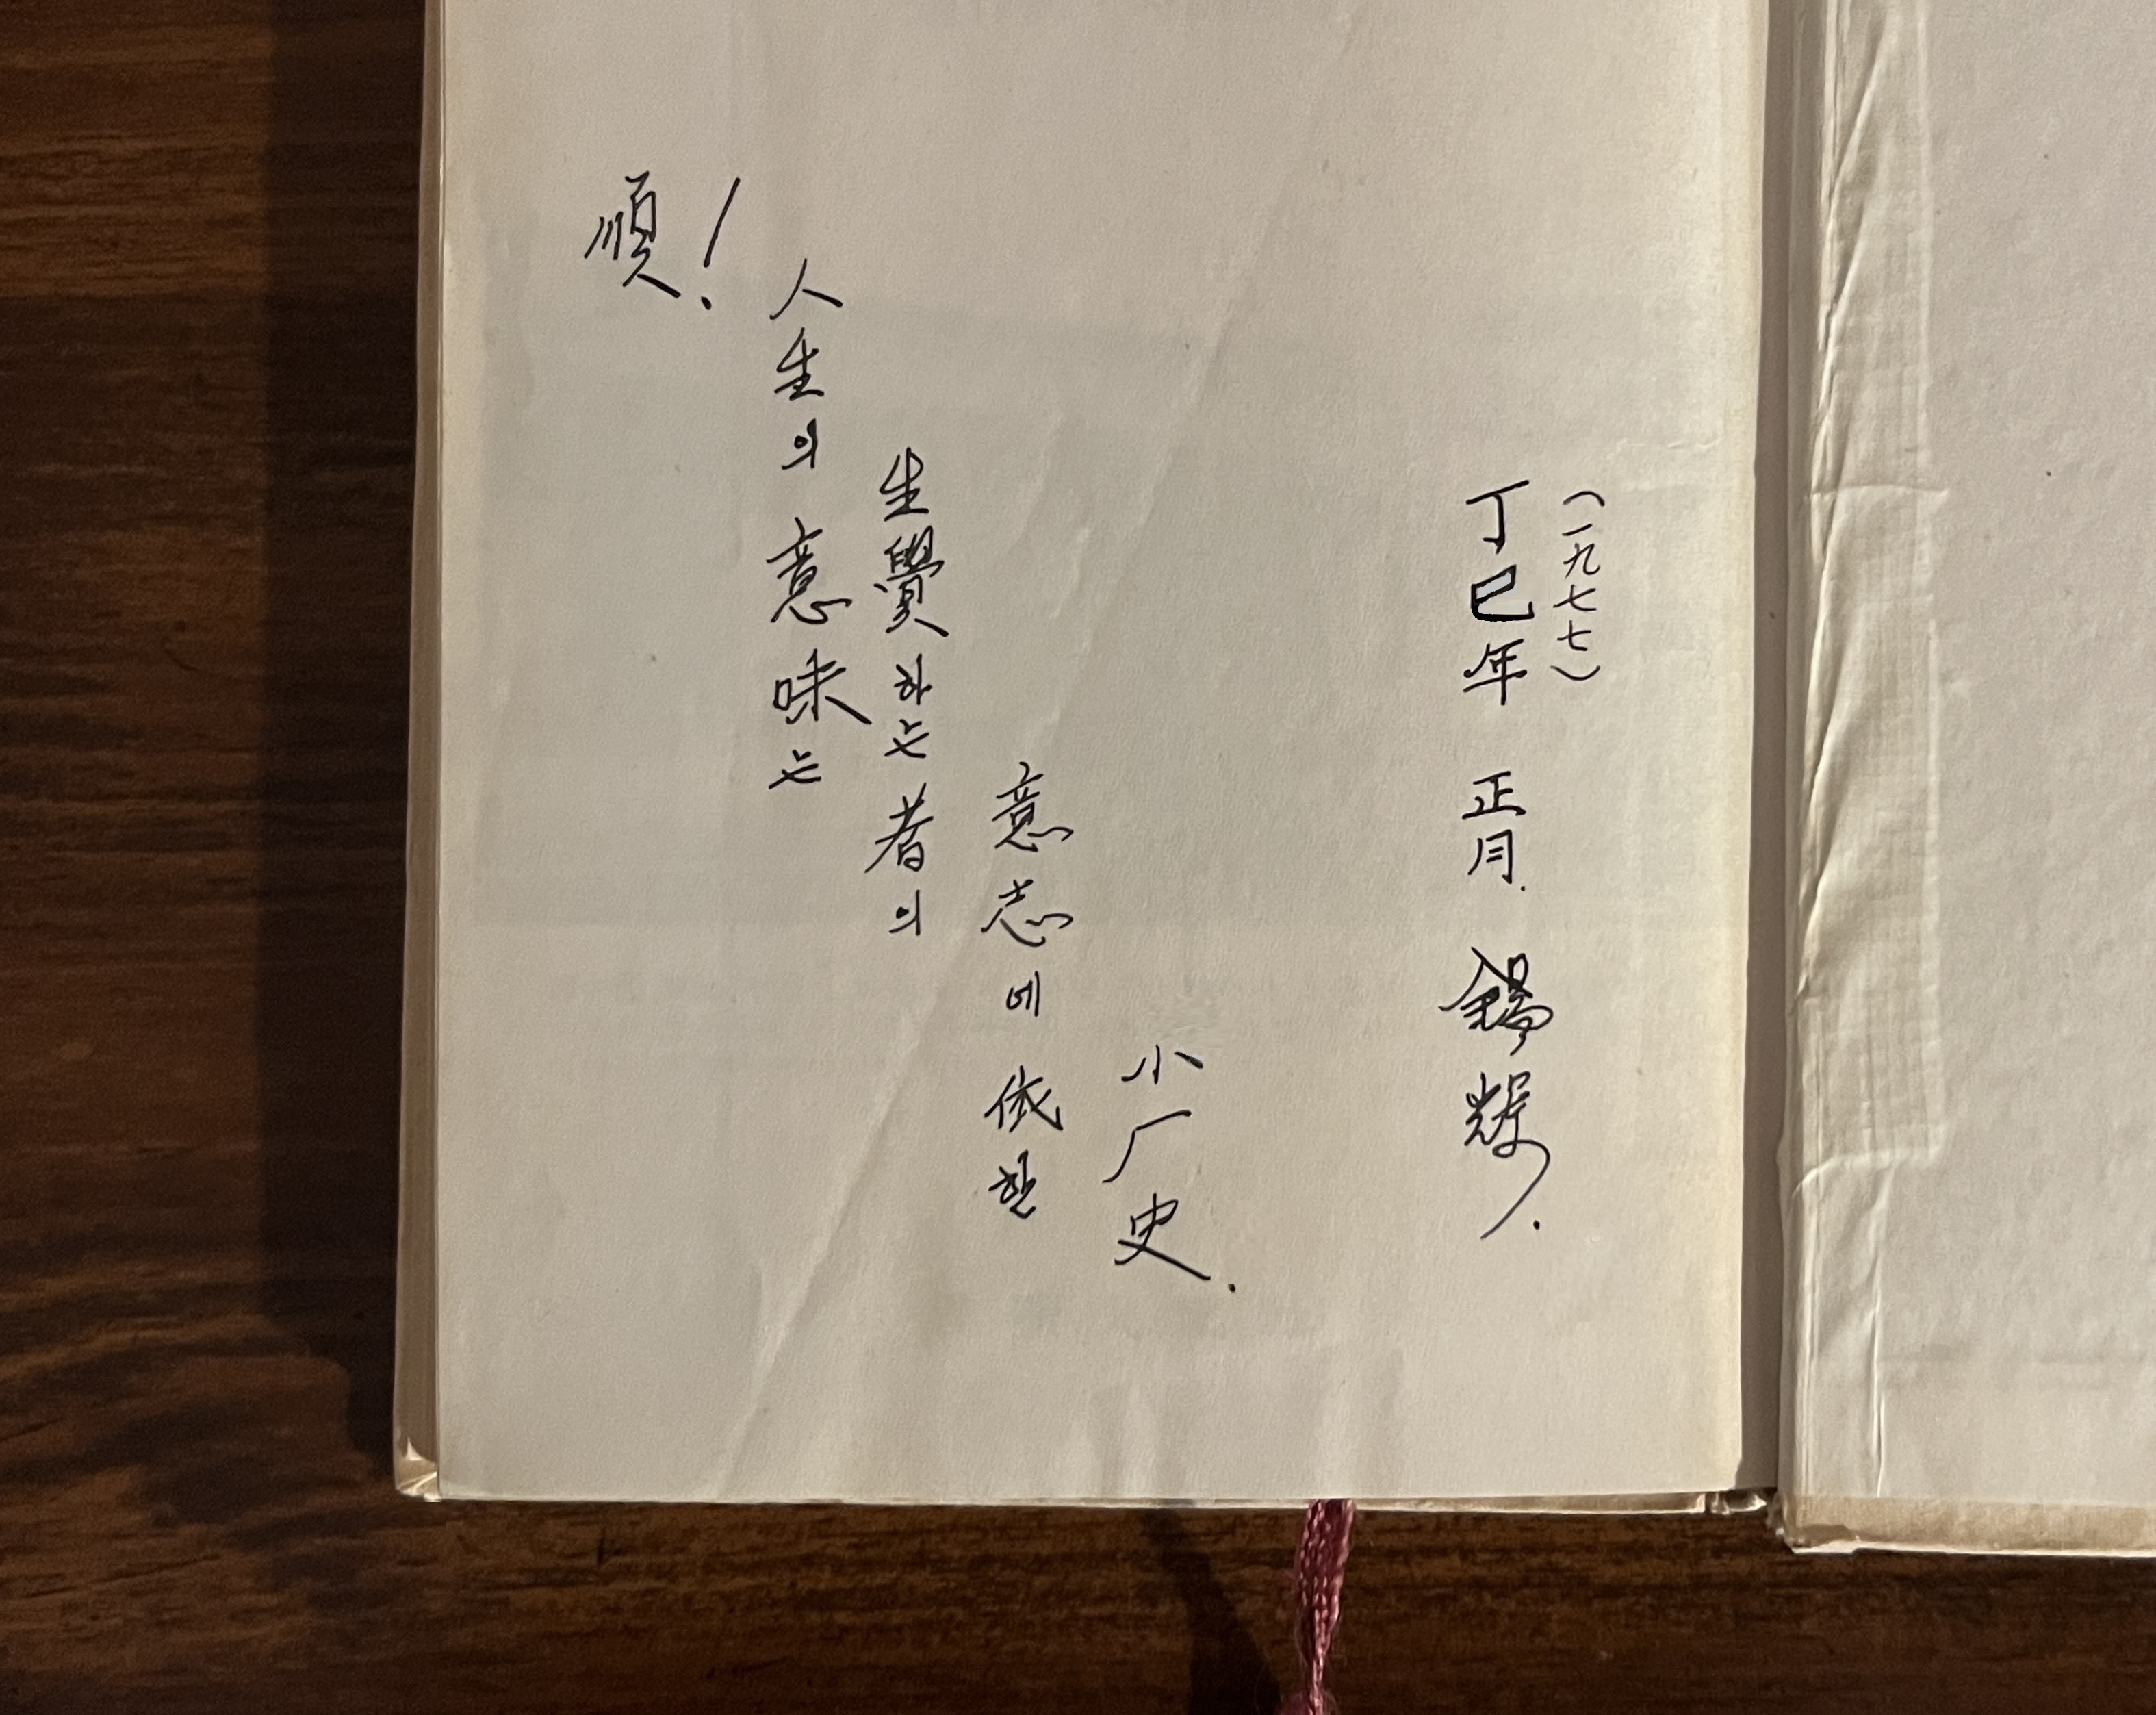 順!
人生의 意味는
生覺하는 者의
意志에 依한
小厂史.
(一九七七)
丁巳年 正月. 錫輝.